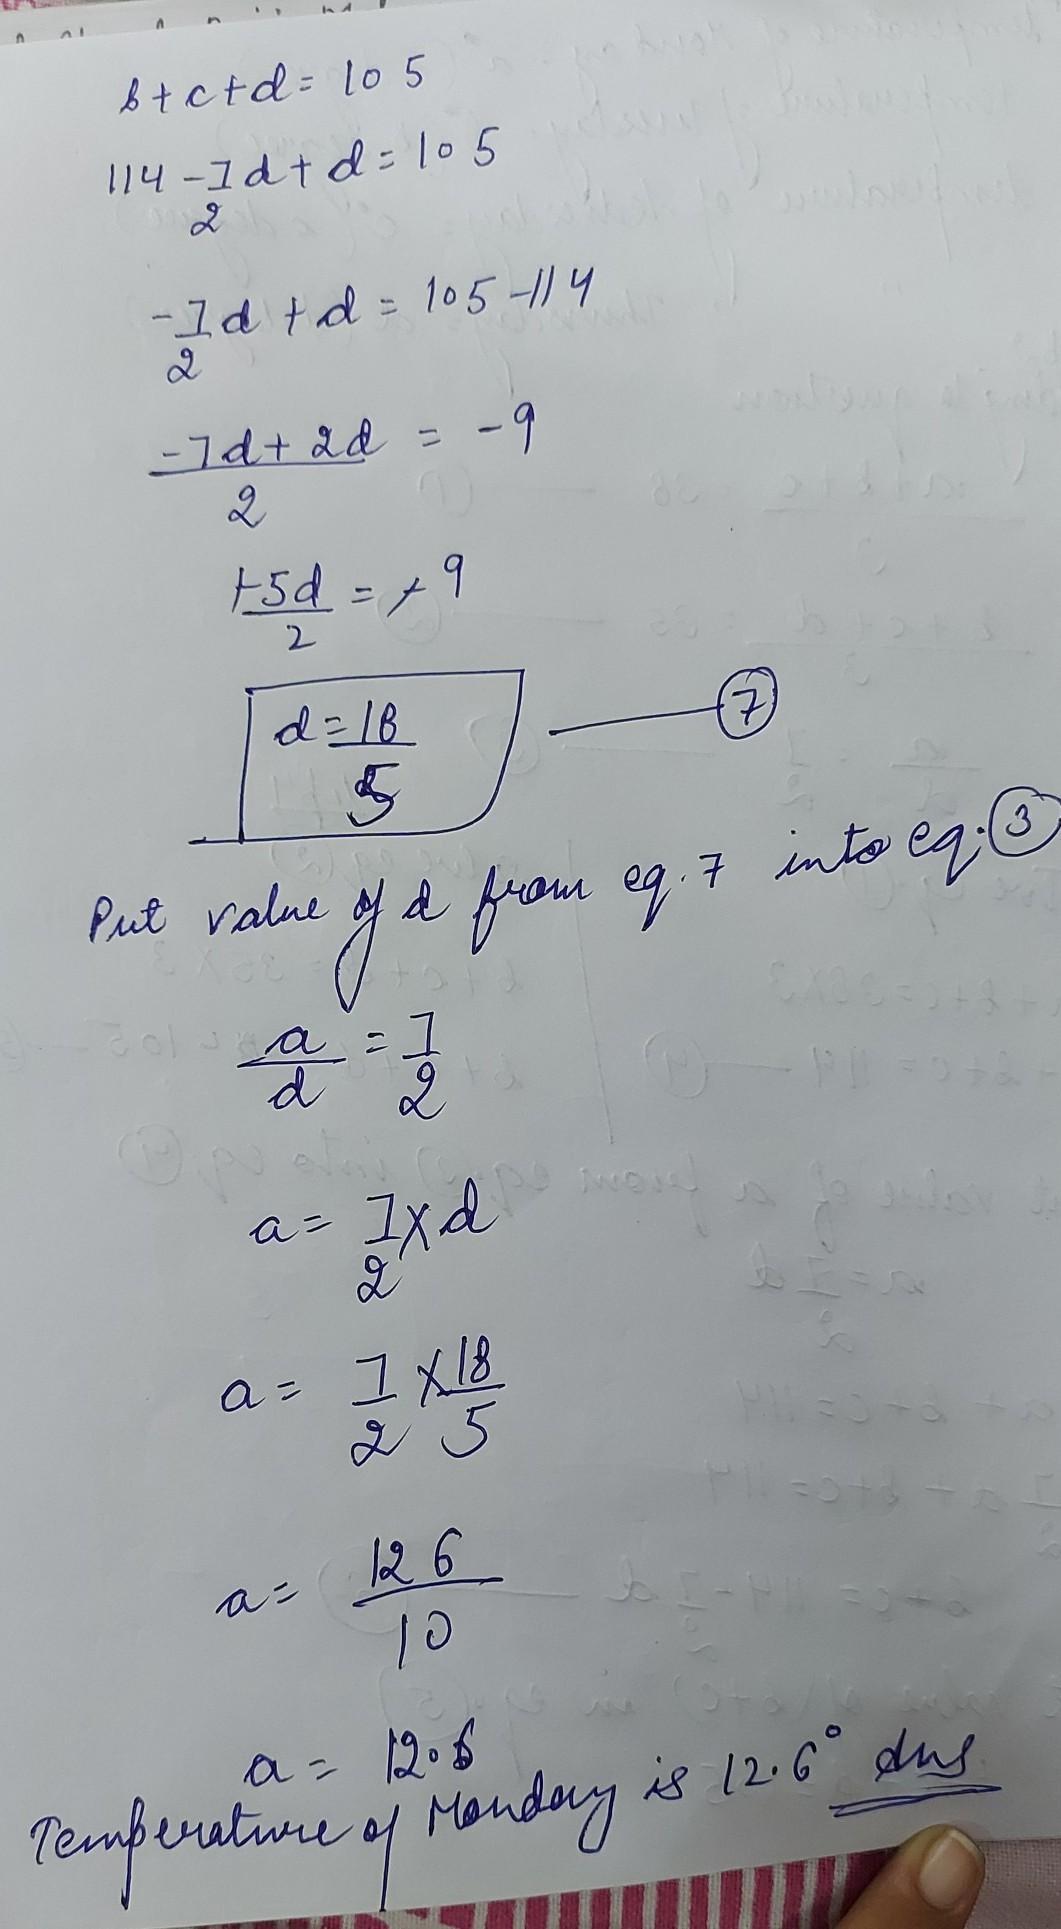 b+c+d=105
114-7/2d+d=105
-7/2d+d=105-114
-7d+2d/2=-9
+5d/2=+9
d=18/5 ⑦
Put value of d from eq.7 into eq.③
a/d=7/2
a=7/2×d
a=7/2×18/5
a=126/10
a=12.6
Temperature of Monday is 12.6° Ans